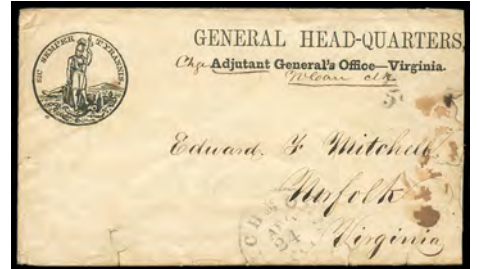 SIC SEMPER TYRANNIS.
GENERAL HEAD-QUARTERS,
Chge Adjutant General's Office—Virginia.
Edward. F Mitchell
Norfolk
24
Virginia